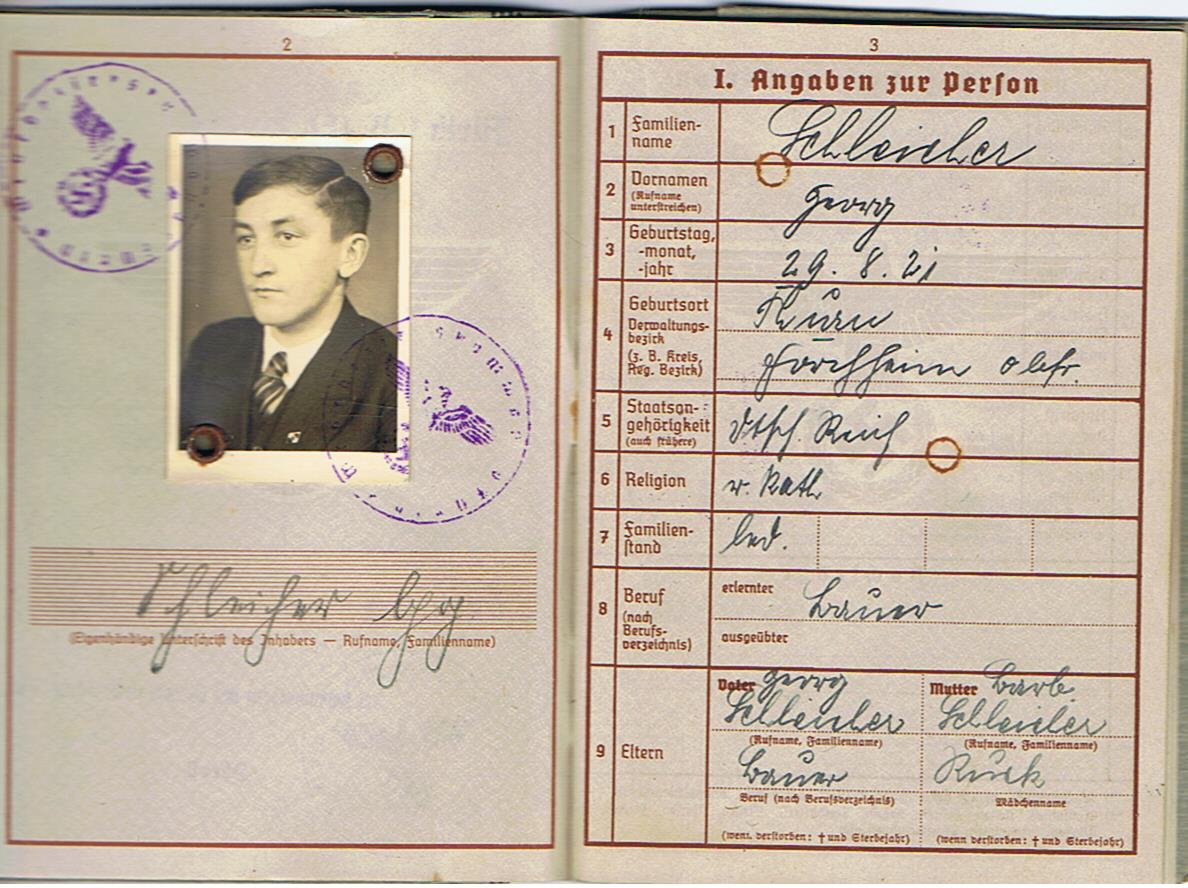 2
Schleicher Gg
(Eigenhändige Unterschrift des Inhabers — Rufname, Familienname)
3
I. Angaben zur Person
1 Familien-
name
Schleicher
2 Vornamen
(Rufname
unterstreichen)
Georg
3 Geburtstag,
-monat,
-jahr
29. 8. 21
4 Geburtsort
Verwaltungs-
bezirk
(z. B. Kreis,
Reg. Bezirk)
Thurn
Forchheim Obfr.
5 Staatsan-
gehörigkeit
(auch frühere)
Dtsch. Reich
6 Religion
r. kath
7 Familien-
stand
led.
8 Beruf
(nach
Berufs-
verzeichnis)
erlernter Bauer
ausgeübter
9 Eltern
Vater Georg
Schleicher
(Rufname, Familienname)
Bauer
Beruf (nach Berufsverzeichnis)
(wenn verstorben: † und Sterbejahr)
Mutter Barb.
Schleicher
(Rufname, Familienname)
Mädchenname
(wenn verstorben: † und Sterbejahr)